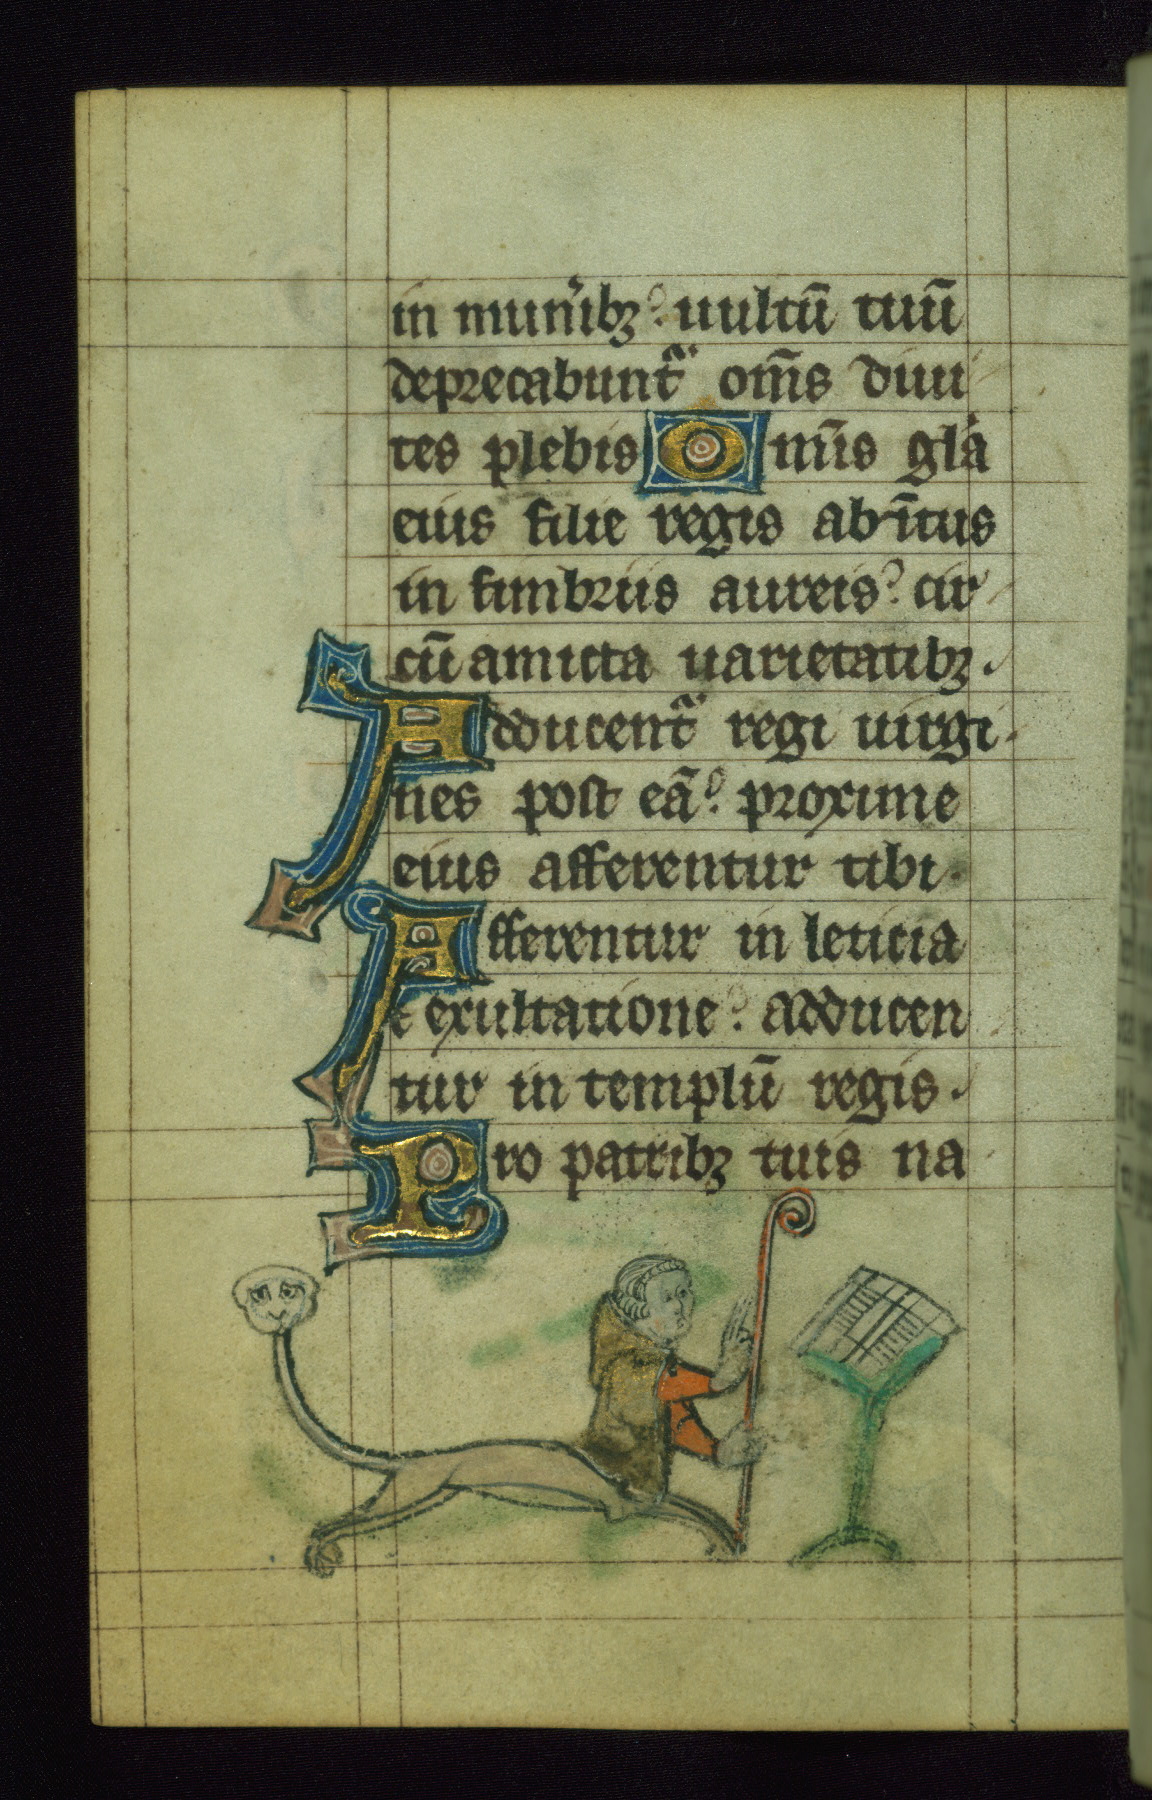 in mun'ibꝫ: uultū tuū
deprecabunt᷑ om̄s diui
tes plebis Omīs gl'a
eius filie regis ab ītus
in fimbriis aureis: cir
cū amicta uarietatibꝫ.
Adducent᷑ regi uirgi
nes post eā: proxime
eius afferentur tibi.
Afferentur in leticia
⁊ exultatione: adducen
tur in templū regis.
Pro patribꝫ tuis na